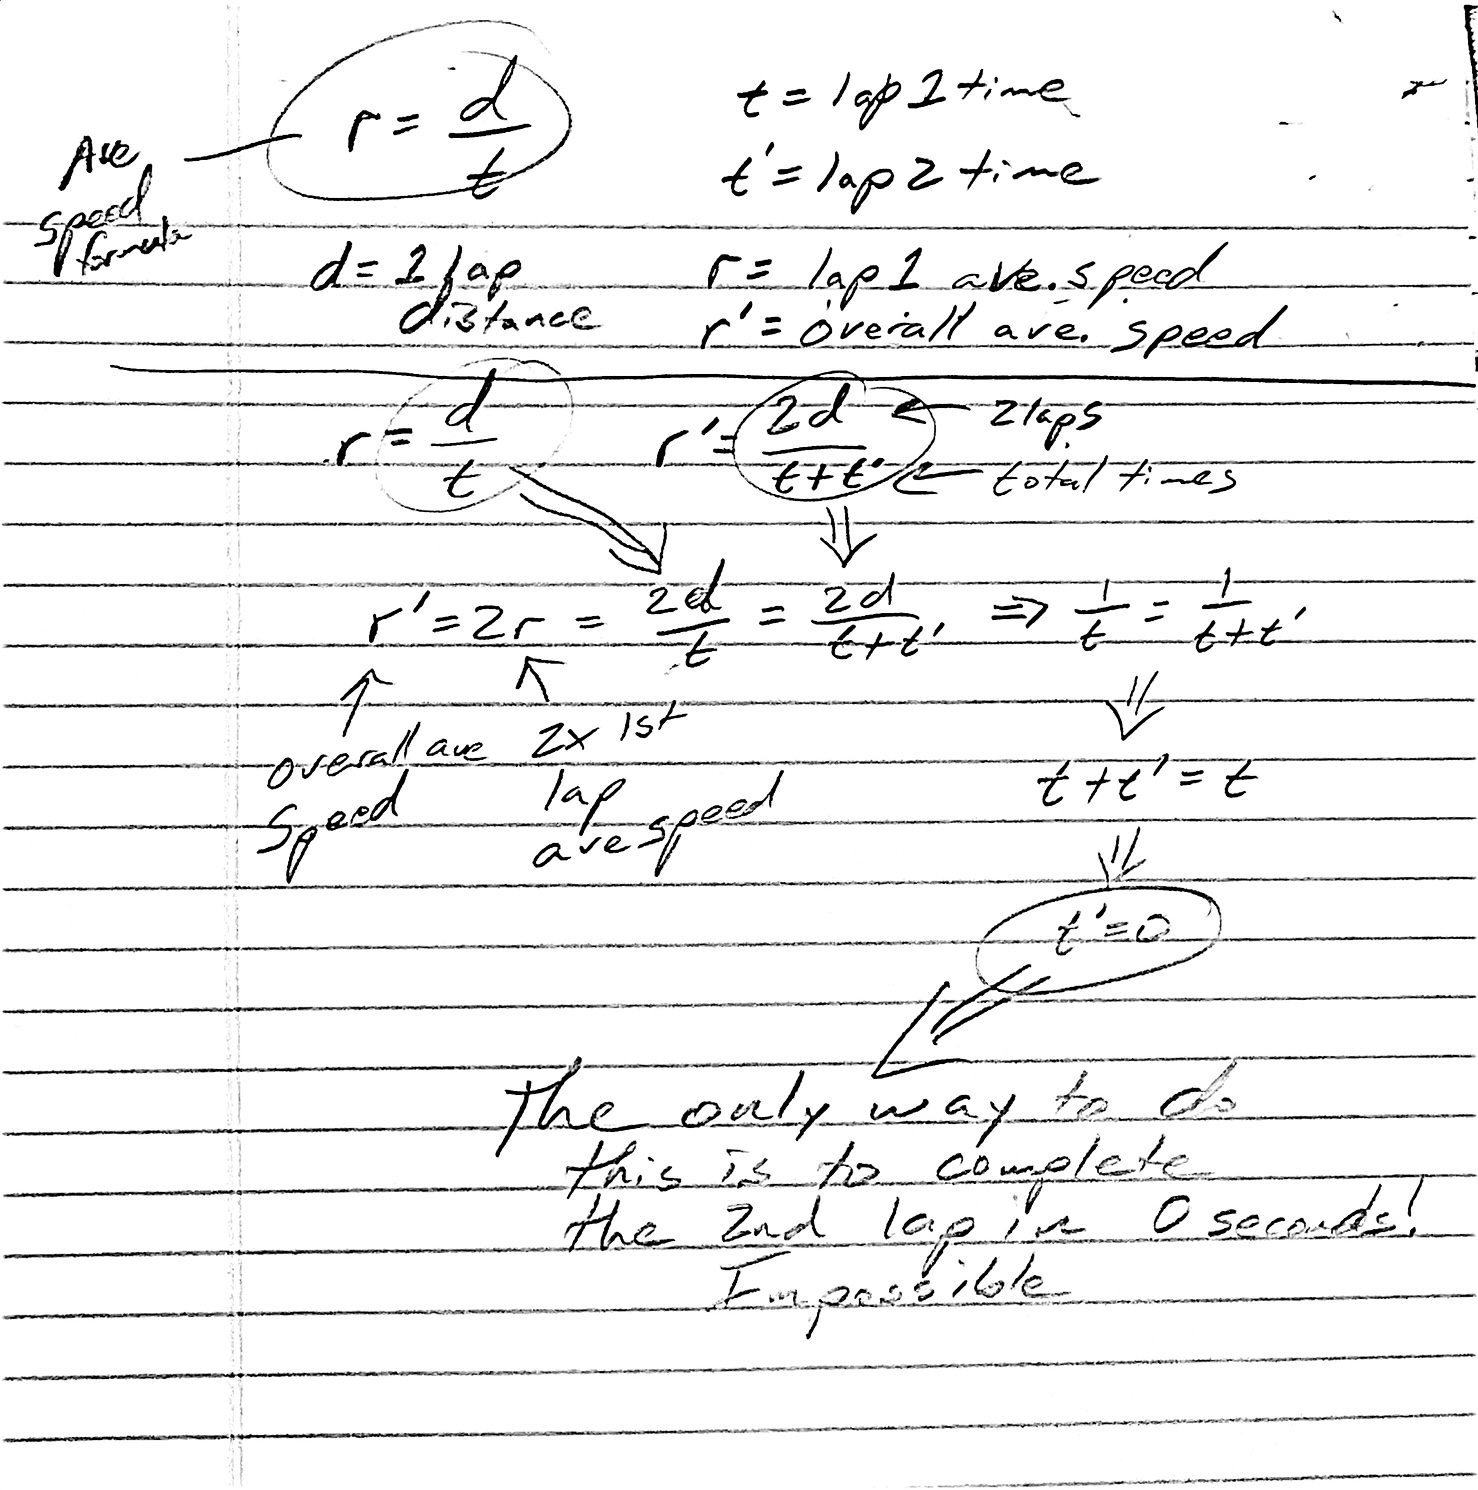 r = d/t
t = lap 1 time
Ave
speed
formula
t' = lap 2 time
d = 1 lap
distance
r = lap 1 ave. speed
r' = overall ave. speed
r = d/t
r' = 2d/(t+t') ← 2 laps
← total times
r' = 2r = 2d/t = 2d/(t+t') ⇒ 1/t = 1/(t+t')
↑ ↖ ⇓
overall ave
speed
2x 1st
lap
ave speed
t + t' = t
⇓
t' = 0
The only way to do
this is to complete
the 2nd lap in 0 seconds!
Impossible